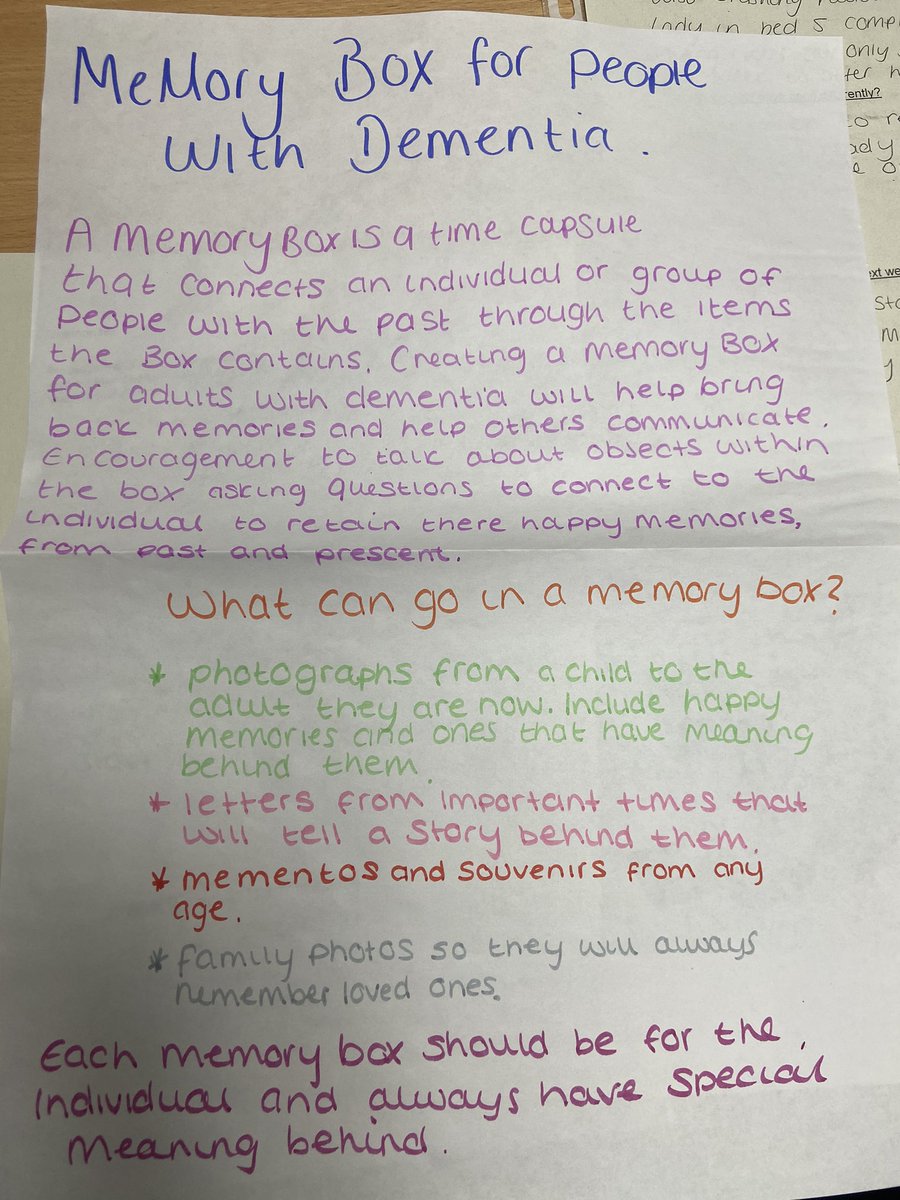 MeMory Box for People
With Dementia.
A memory Box is a time capsule
that connects an individual or group of
People with the past through the items
the Box contains. Creating a memory Box
for adults with dementia will help bring
back memories and help others communicate.
Encouragement to talk about objects within
the box asking questions to connect to the
individual to retain there happy memories,
from past and prescent.
What can go in a memory box?
* photographs from a child to the
adult they are now. Include happy
memories and ones that have meaning
behind them.
* letters from important times that
will tell a story behind them.
* mementos and souvenirs from any
age.
* family photos so they will always
remember loved ones.
Each memory box should be for the
individual and always have special
meaning behind.
lady in bed 5
only
rently?
ext we